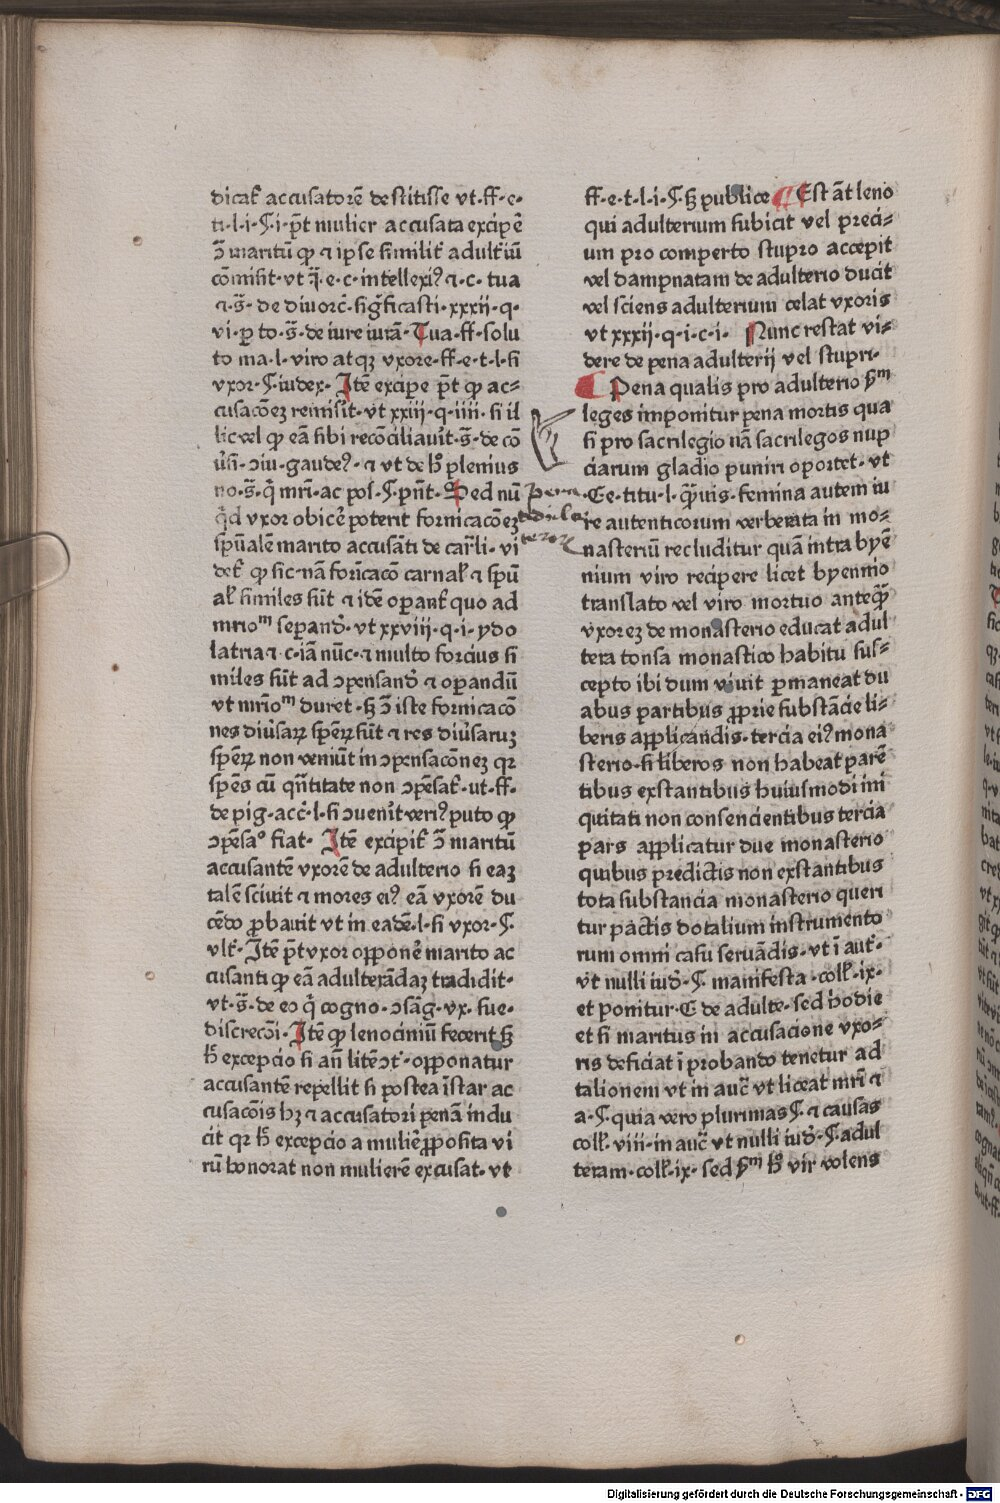 dicat̄ accusatorē destitisse vt·ff·e·
ti·l·i·¶·i·p̄t mulier accusata excipē
ↄ̄ maritū ꝙ ⁊ ipse similit̄ adult̄iū
cōmisit·vt q̄·e·c·intellexiꝰ ⁊·c· tua
⁊·s̄· de diuorc̄·siḡficasti·xxxii·q·
vi·ꝑ to·s̄·de iure iurā· Tua·ff·solu
to ma·l·viro atqꝫ vxore·ff·e·t·l·si
vxor·¶·iudex· Itē excipe p̄t ꝙ ac⸗
cusacōeꝫ remisit·vt xxiij·q·iiii·si il
lic vel ꝙ eā sibi recōciliauit·s̄·de cō
ūsi·ↄiu·gaudeꝰ·⁊ vt de hͦ plenius
no·s̄·q̄ mri·ac pos·¶·pn̄t· Sed nū
q̄d vxor obicē poterit fornicacōeꝫ
spūalem marito accusāti de car̄li· vi
det̄ ꝙ sic·nā forīcacō carnal̄ ⁊ spū
al̄ similes sūt ⁊ idē oꝑant̄ quo ad
mrioᵐ seꝑand̄·vt xxviii·q·i·ydo
latria ⁊·c·iā nūc·⁊ multo forcius si
miles sūt ad ↄpensand̄ ⁊ oꝑandū
vt mr̄ioᵐ duret·sꝫ ↄ̄ iste fornicacō
nes diūsaꝝ spēꝝ sūt ⁊ res diūsaruꝫ
spēꝝ non veniūt in ↄpensacōneꝫ qꝛ
spēs cū qn̄titate non ↄpēsat̄·ut·ff·
de pig·acc̄·l·si ↄuenit·veriꝰ puto ꝙ
ↄpēsaͦ fiat· Itē excipit̄ ↄ̄ maritū
accusantē vxorē de adulterio si eaꝫ
talē sciuit ⁊ mores eiꝰ eā vxorē du
cēdo ꝓbauit vt in eadē·l·si vxor·¶·
vlt̄· Itē p̄t vxor opponē marito ac
cusanti ꝙ eā adulterādaꝫ tradidit·
vt·s̄·de eo q̄ cogno·ↄsāg·vx·sue·
discrecōi· Itē ꝙ lenociniū fecerit sꝫ
hͦ excepcio si an̄ litē ↄt̄·opponatur
accusantē repellit si postea īstar ac
cusacōis hꝫ ⁊ accusatori penā indu
cit qꝛ hͦ excepcio a muliē ꝓposita vi
rū honorat non mulierē excusat·vt
ff·e·t·l·i·¶·sꝫ publice Est āt leno
qui adulterium subicit vel preci⸗
um pro comperto stupro accepit
vel dampnatam de adulterio ducit
vel sciens adulterium celat vxoris
vt xxxij·q·i·c·i· Nunc restat vi⸗
dere de pena adulterij vel stupri·
Pena qualis pro adulterio sᵐ
leges imponitur pena mortis qua
si pro sacrilegio nā sacrilegos nup
ciarum gladio puniri oportet·vt
·C·e·titu·l·q̄uis·femina autem iu
re autenticorum verberata in mo⸗
nasteriū recluditur quā intra byē
nium viro recipere licet byennio
translato vel viro mortuo anteq̄ꝫ
vxoreꝫ de monasterio educat adul
tera tonsa monastico habitu sus⸗
cepto ibi dum viuit ꝑmaneat du
abus partibus ꝓprie substācie li⸗
beris applicandis·tercia eiꝰ mona
sterio·si liberos non habeat parē
tibus exstantibus huiusmodi ini
quitati non consencientibus tercia
pars applicatur due monasterio
quibus predictis non exstantibus
tota substancia monasterio queri
tur pactis dotalium instrumento
rum omni casu seruādis·vt ī aut̄·
vt nulli iud̄·¶·manifesta·coll̄·ix·
et ponitur·C de adulte·sed hodie
et si maritus in accusacione vxo⸗
ris deficiat ī probando tenetur ad
talionem vt in auc̄ vt liceat mr̄i ⁊
a·¶·quia vero plurimas ¶·⁊ causas
coll̄·viii·in auc̄ vt nulli iud̄·¶·adul
teram·coll̄·ix·sed sᵐ hͦ vir volens
pena
Digitalisierung gefördert durch die Deutsche Forschungsgemeinschaft - DFG